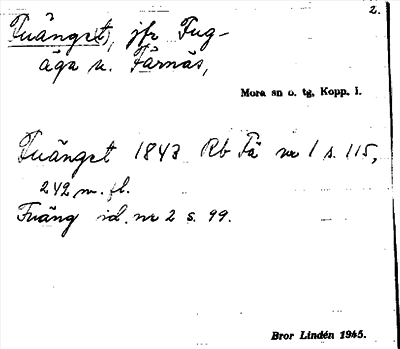 2.
Tuänget), jfr Tug-
äga u. Färnäs,
Mora sn o. tg, Kopp. l.
Tuänget 1843 Rb Fä nr 1 s. 115,
242 m. fl.
Tuäng id. nr 2 s. 99.
Bror Lindén 1945.